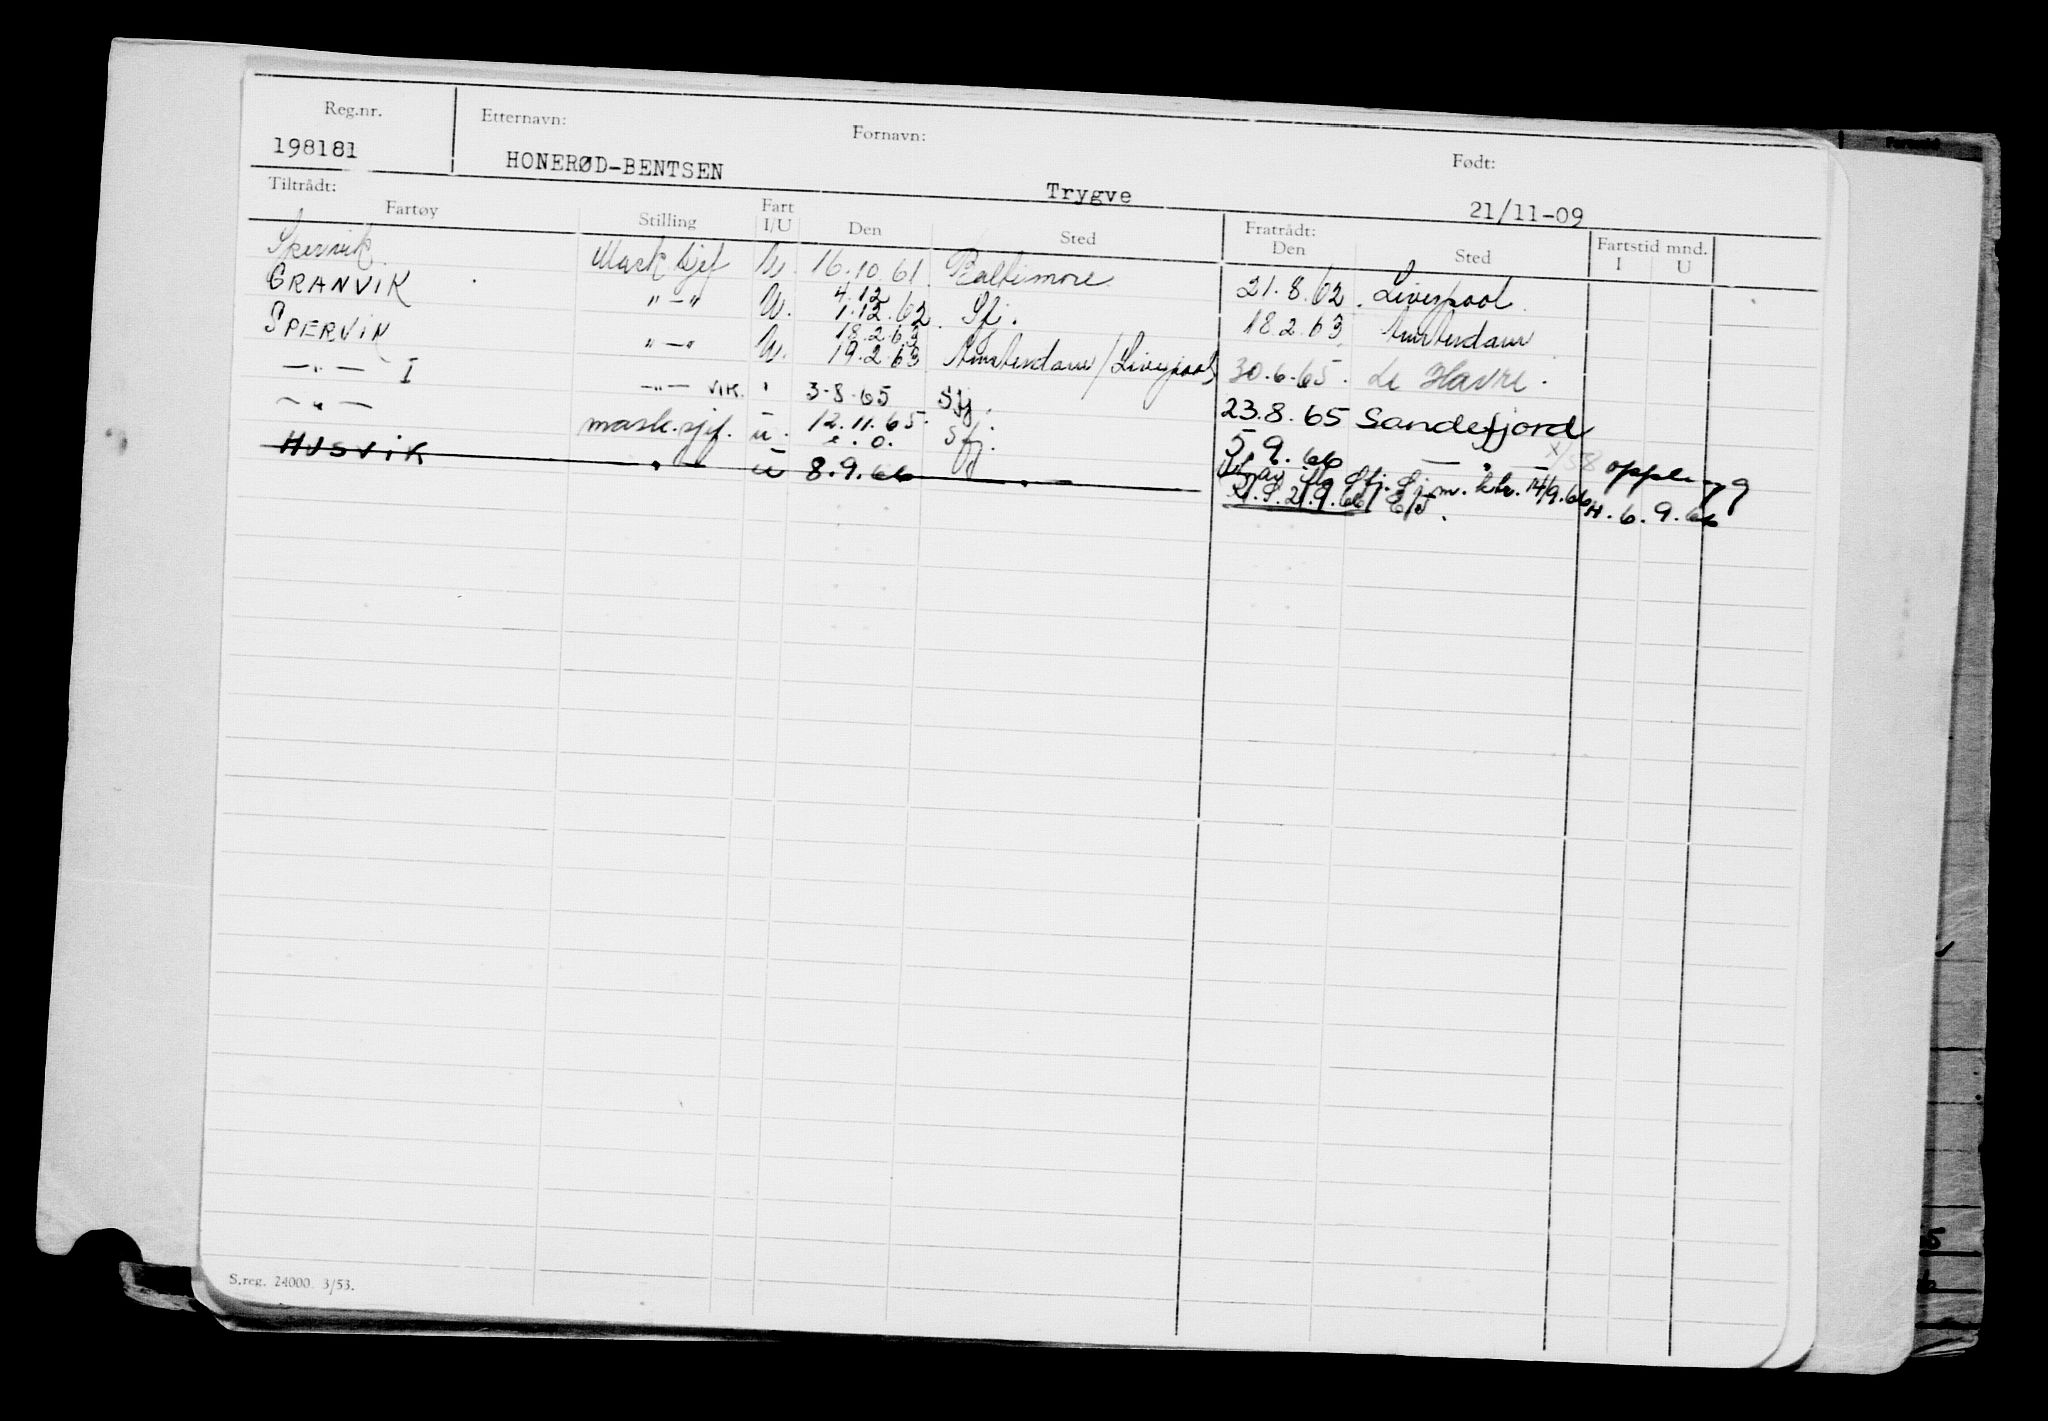 Reg.nr. Etternavn: Fornavn: Født:
198181 HONERØD-BENTSEN Trygve 21/11-09
Tiltrådt: Fratrådt:
Fartøy Stilling Fart I/U Den Sted Den Sted Fartstid mnd. I U
Spervik Mask sjef U. 16.10.61. Baltimore 21.8.62. Liverpool.
GRANVIK "-" U. 4.12 1.12.62. Sfj. 18.2.63 Amsterdam
SPERVIK "-" U. 18.2.63 19.2.63 Amsterdam/Liverpool 30.6.65. Le Havre.
-"- I -"- VIK. " 3.8.65 Sfj. 23.8.65 Sandefjord
-"- mask.sjef. u. 12.11.65. e.o. Sfj. 5.9.66 -"- X/58 oppl. og
HUSVIK " - u 8.9.66 - " - Sfj. 14/9.66 H. 6.9.66
21.9.66
S.reg. 24000. 3/53.